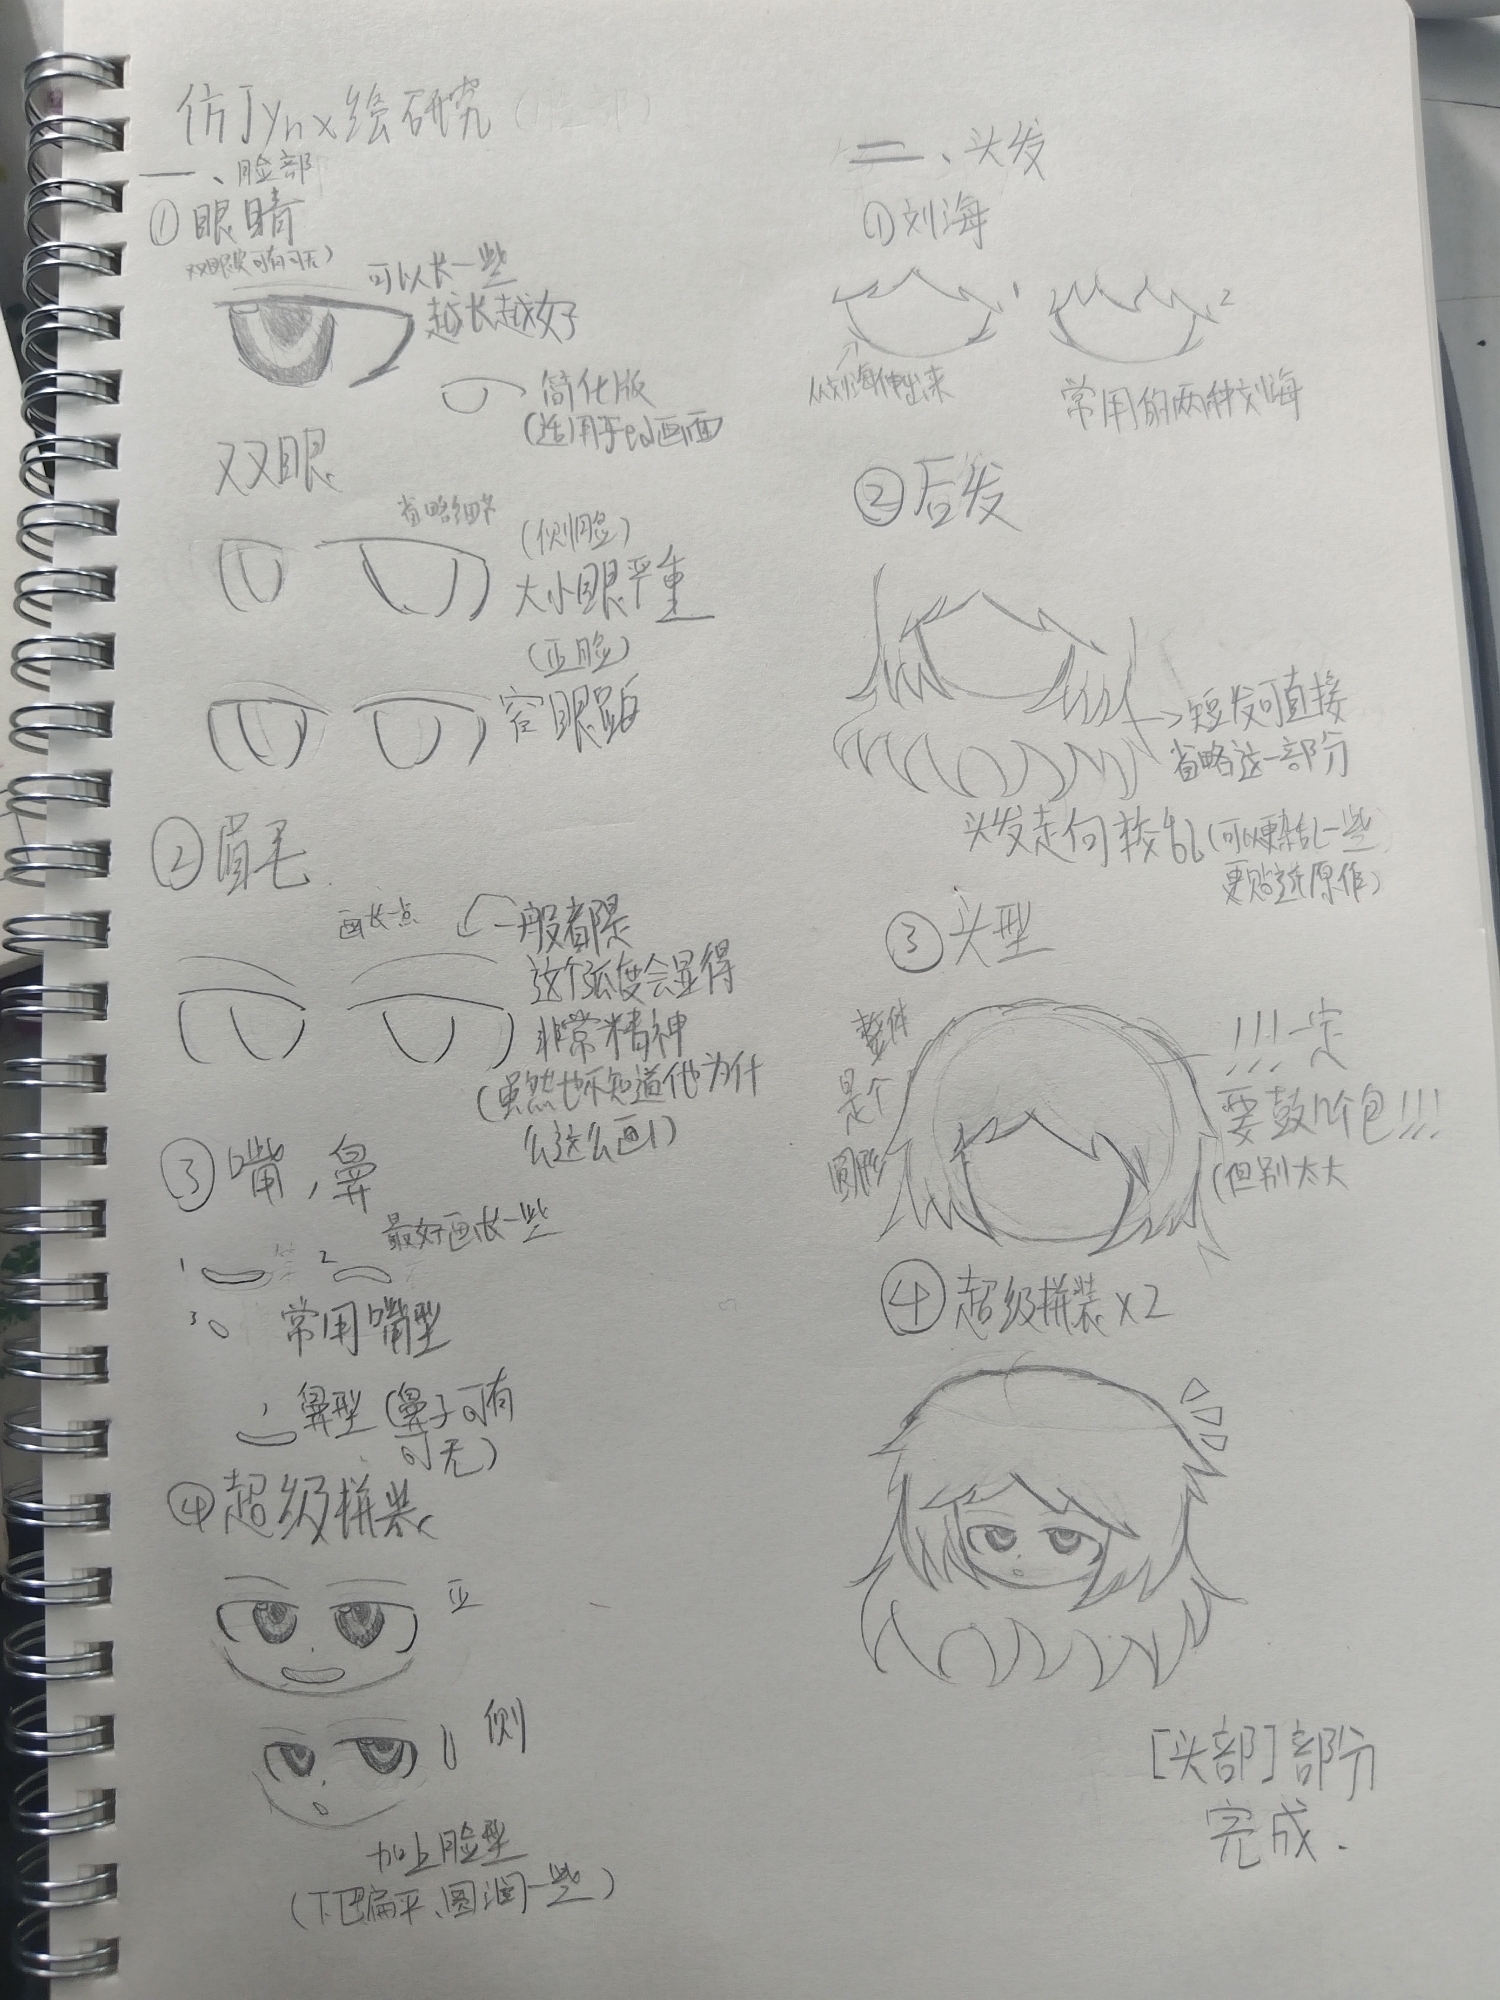 仿Jynx绘研究(脸部)
一、脸部
①眼睛
双眼皮可有可无)
可以长一些
越长越好
简化版
(适用于q画面
双眼
省略细节
(侧脸)
大小眼严重
(正脸)
窄眼距
②眉毛
画长一点
一般都是
这个弧度会显得
非常精神
(虽然也不知道他为什
么这么画!)
③嘴,鼻
最好画长一些
1
2
3
常用嘴型
鼻型(鼻子可有
可无)
④超级拼装
正
侧
加上脸型
(下巴扁平、圆润一些)
二、头发
①刘海
1
2
从刘海伸出来
常用的两种刘海
②后发
短发可直接
省略这一部分
头发走向较乱(可以更杂乱一些
更贴近原作)
③头型
整体
是个
圆形
!!!一定
要鼓几个包!!!
(但别太大
④超级拼装x2
[头部]部分
完成.